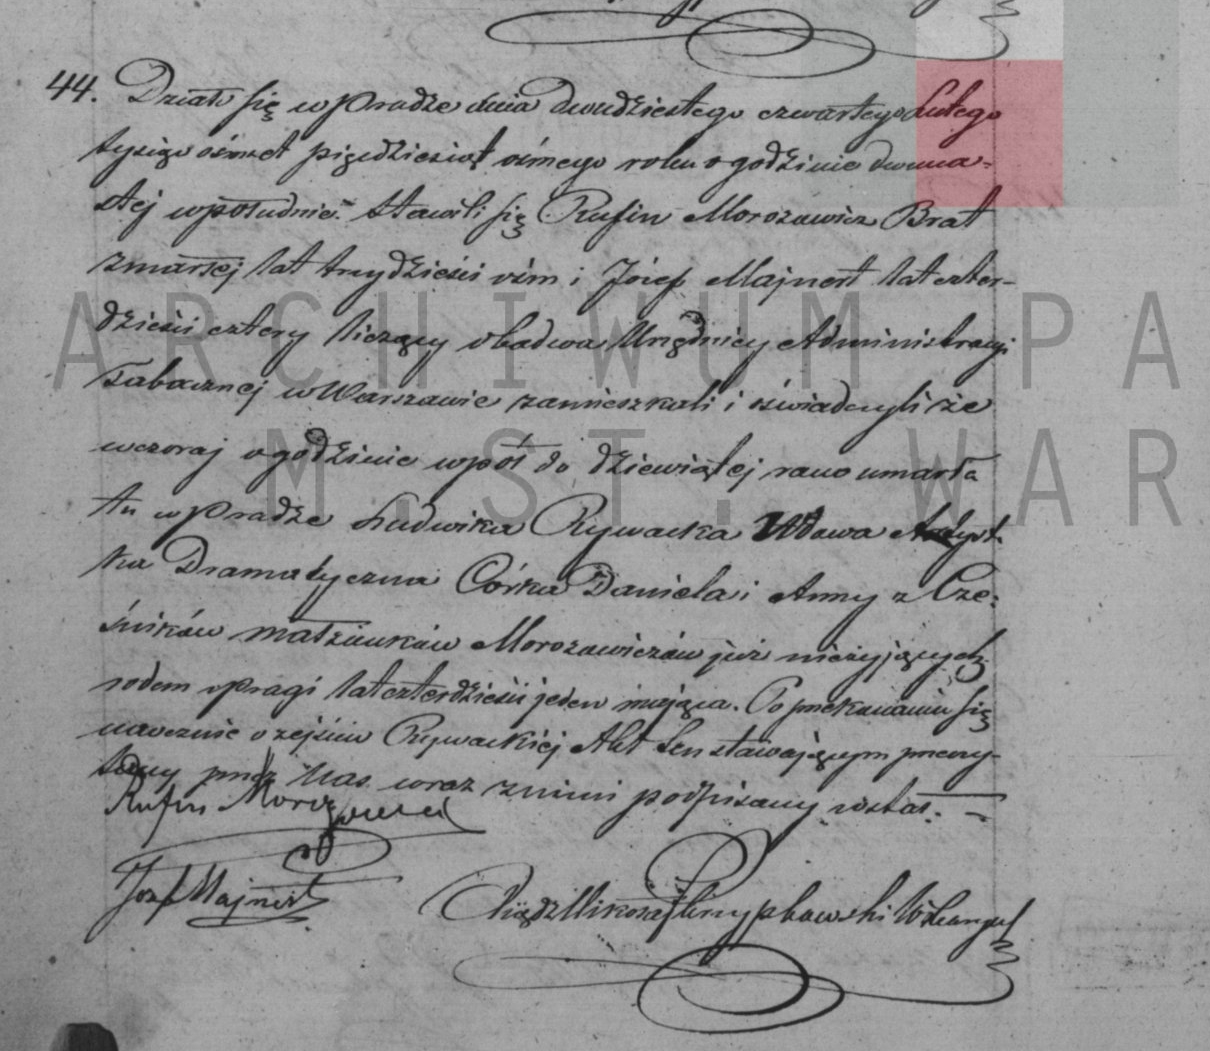 44. Działo się w Pradze dnia dwudziestego czwartego Lutego
tysiąc ośmset pięćdziesiąt ósmego roku o godzinie dwuna-
stej w południe. Stawili się Rufin Morozowicz Brat
zmarłej lat trzydzieści ośm i Józef Majnert lat czter-
dzieści cztery liczący obadwa Urzędnicy Administracyi
Tabacznej w Warszawie zamieszkali i oświadczyli że
wczoraj o godzinie w pół do dziewiątej rano umarła
tu w Pradze Ludwika Rywacka Wdowa Artyst-
ka Dramatyczna Córka Daniela i Anny z Cze-
śników małżonków Morozowiczów już nieżyjących
rodem z Pragi lat czterdzieści jeden mająca. Po przekonaniu się
naocznie o zejściu Rywackiej Akt ten stawającym przeczy-
tany przez Nas wraz z niemi podpisany został.
Rufin Morozowicz
Józef Majnert
Xiądz Mikołaj
ARCHIWUM PA
M. ST. WAR